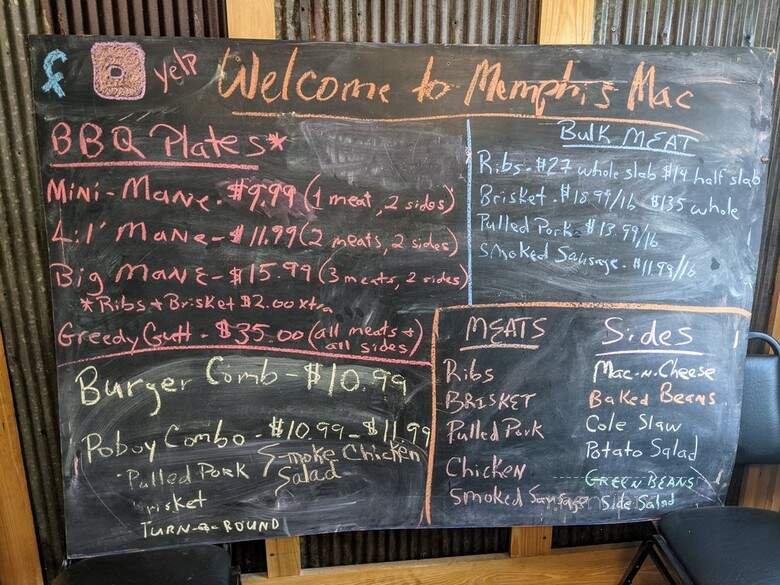 f yelp
Welcome to Memphis Mac
BBQ Plates*
Mini-Mane - $9.99 (1 meat, 2 sides)
Lil' Mane - $11.99 (2 meats, 2 sides)
Big Mane - $15.99 (3 meats, 2 sides)
*Ribs + Brisket $2.00 xtra
Greedy Gutt - $35.00 (all meats +
all sides)
Burger Comb - $10.99
Poboy Combo - $10.99 - $11.99
- Pulled Pork
Smoke Chicken
Salad
risket
TURN-A-ROUND
Bulk MEAT
Ribs - $27 whole slab $14 half slab
Brisket - $18.99/lb $135 whole
Pulled Pork - $13.99/lb
Smoked Sausage - $11.99/lb
MEATS
Ribs
BRISKET
Pulled Pork
Chicken
Smoked Sausage
Sides
Mac-N-Cheese
Baked Beans
Cole Slaw
Potato Salad
GREEN BEANS
Side Salad